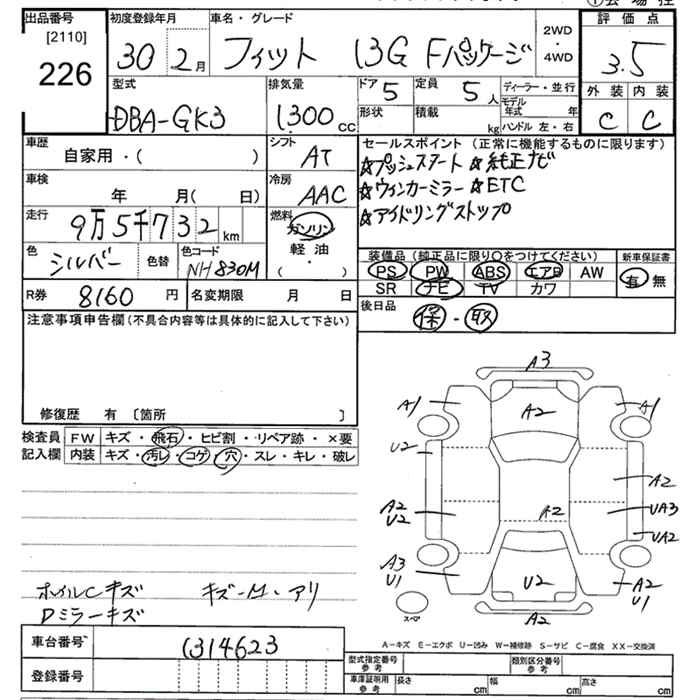 出品番号 初度登録年月 車名・グレード 2WD・4WD 評価点
[2110]
226
30 2月 フィット 13G Fパッケージ 3.5
型式 排気量 ドア 5 定員 5人 ディーラー・並行 外装 内装
DBA-GK3 1,300 cc 形状 積載 kg モデル年式 年 C C
ハンドル 左・右
車歴 自家用・( ) シフト AT セールスポイント (正常に機能するものに限ります)
☆プッシュスタート ☆純正ナビ
車検 年 月( 日) 冷房 AAC ☆ウィンカーミラー ☆ETC
走行 9万5千732km 燃料 ガソリン ☆アイドリングストップ
軽油
・
( )
色 シルバー 色替 色コード NH830M 装備品 (純正品に限り○をつけてください) 新車保証書
PS PW ABS エアB AW 有 無
SR ナビ TV カワ
R券 8160 円 名変期限 月 日 後日品 保・取
注意事項申告欄(不具合内容等は具体的に記入して下さい)
修復歴 有 〔箇所 〕
検査員 FW キズ・飛石・ヒビ割・リペア跡・×要
記入欄 内装 キズ・汚レ・コゲ・穴・スレ・キレ・破レ
A3
A1 A2 A1
U2 A2
A2 U2 A2 UA3
UA2
A3 U1 U2 A2 U1
スペア A2
ホイルCキズ キズ-M・アリ
Dミラーキズ
A-キズ E-エクボ U-凹み W-補修跡 S-サビ C-腐食 XX-交換済
車台番号 1314623
登録番号
型式指定番号 参考 類別区分番号 参考
車庫証明用 参考 長さ cm 幅 cm 高さ cm